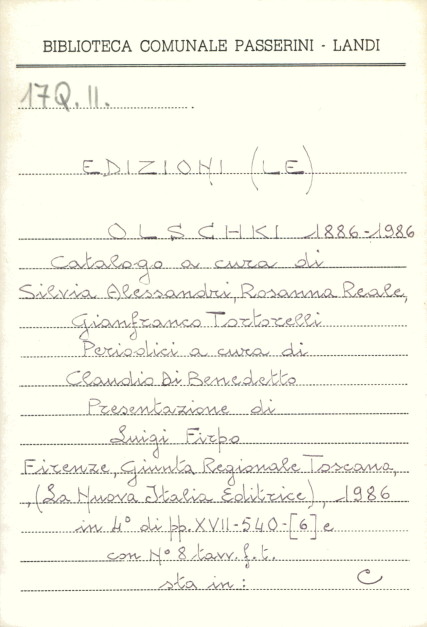 BIBLIOTECA COMUNALE PASSERINI - LANDI
17Q.II.
EDIZIONI (LE)
OLSCHKI 1886-1986
Catalogo a cura di
Silvia Alessandri, Rosanna Reale,
Gianfranco Tortorelli
Periodici a cura di
Claudio Di Benedetto
Presentazione di
Luigi Firpo
Firenze, Giunta Regionale Toscana,
,(La Nuova Italia Editrice), 1986
in 4° di pp. XVII-540-[6] e
con N° 8 tavv. f. t.
sta in: C